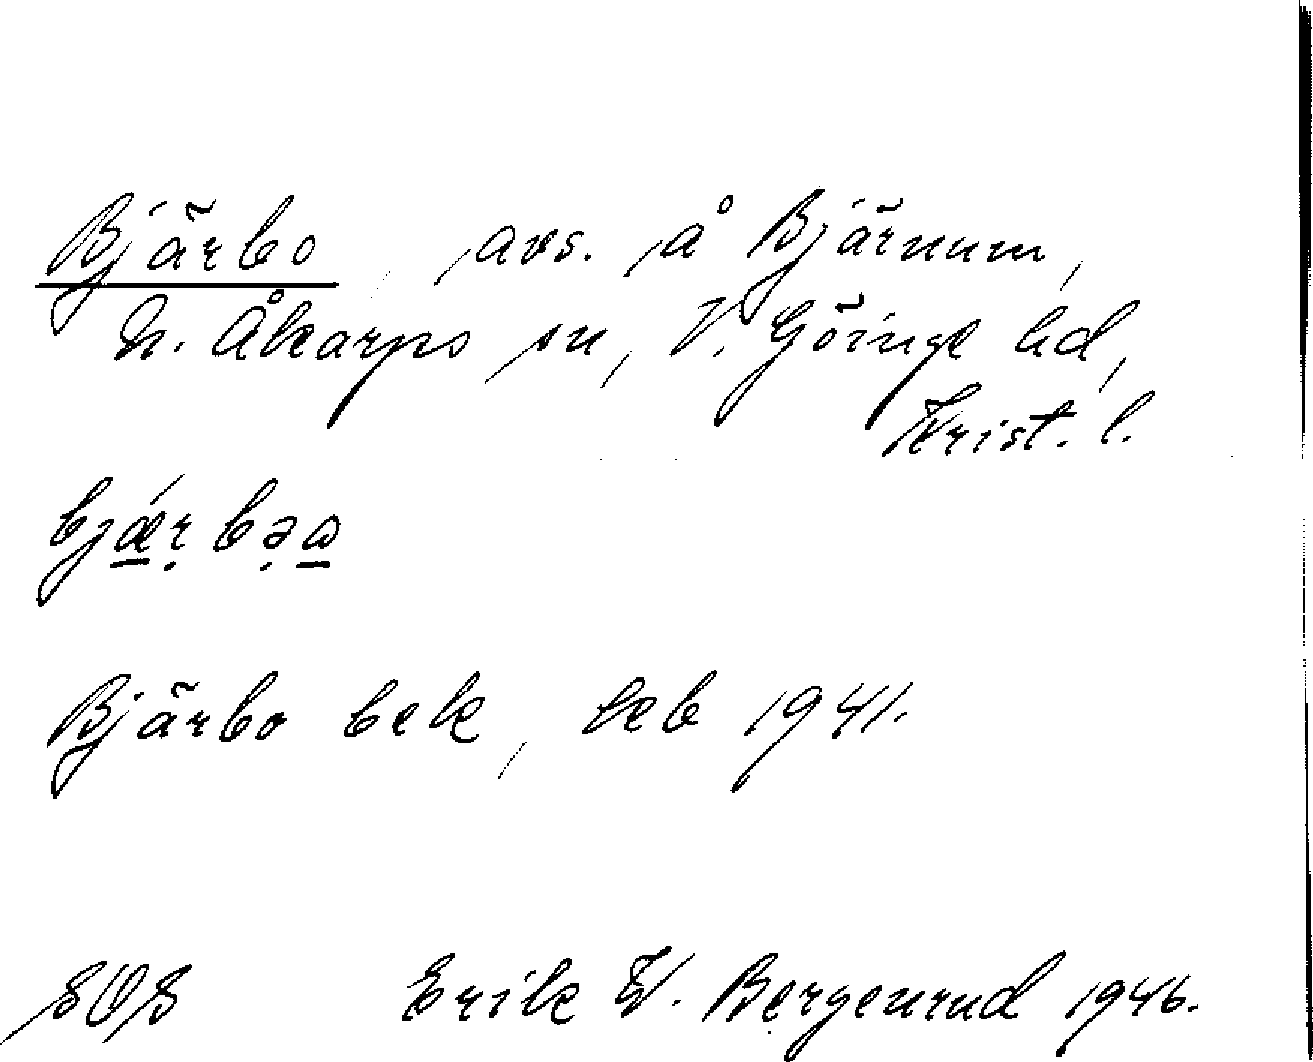 Bjärbo, avs. å Bjärnum,
N. Åkarps sn, V. Göinge hd,
Krist. l.
bjǽrbəɷ
Bjärbo bek, ekb 1941.
SOS Erik W. Bergenrud 1946.